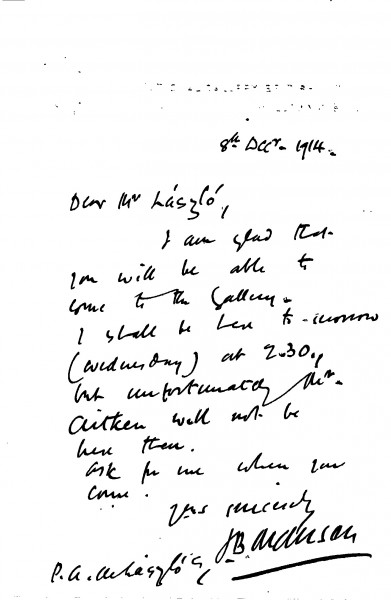 8th Decr. 1914.
Dear Mr László,
I am glad that
you will be able to
come to the Gallery.
I shall be here to-morrow
(Wednesday) at 2.30,
but unfortunately Mr.
Aitken will not be
here then.
Ask for me when you
come.
Yrs sincerely
P. A. de László